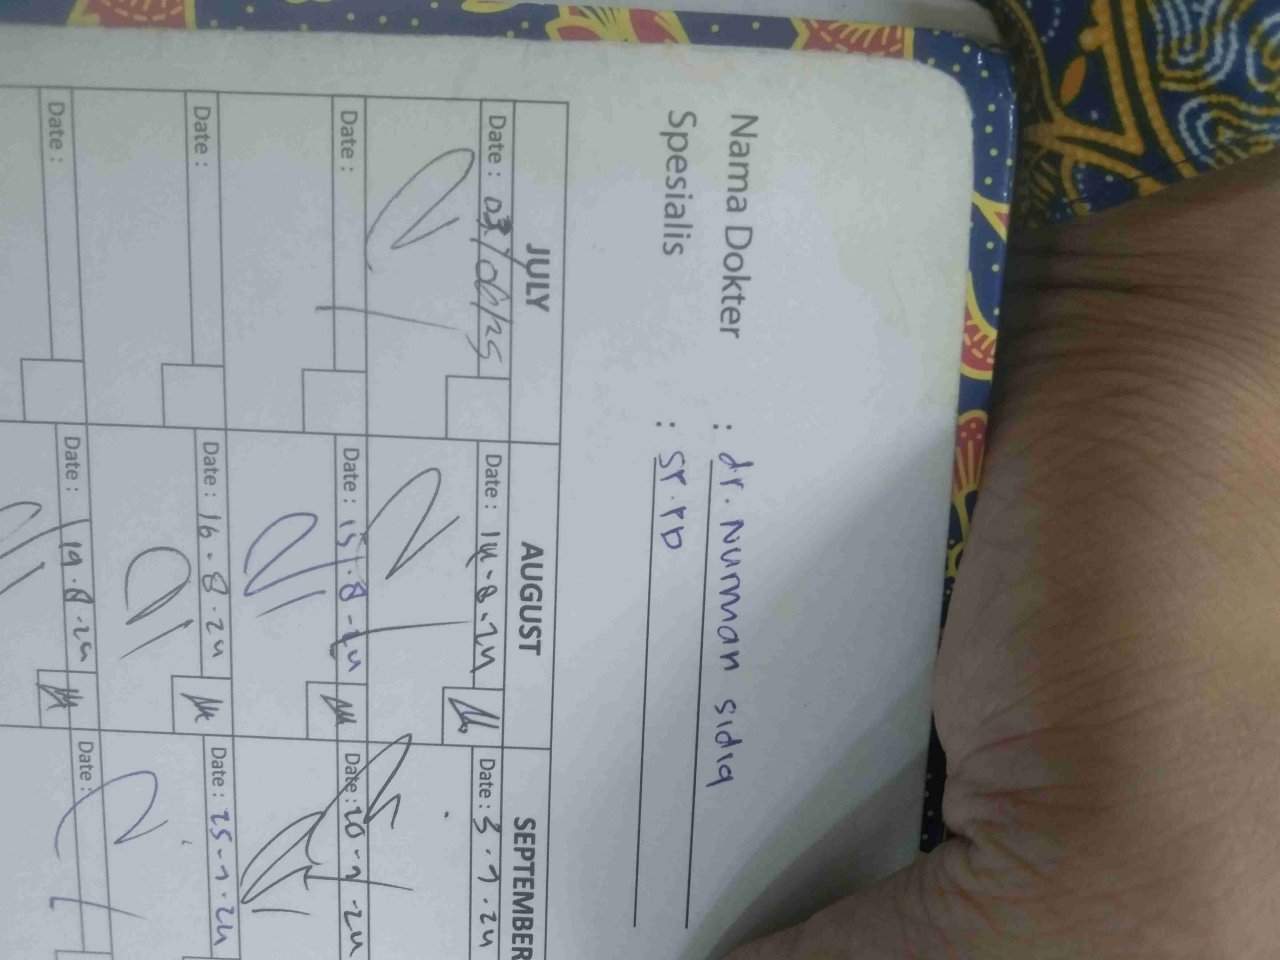 Nama Dokter : dr. Nurman sidiq
Spesialis : sp.PD
JULY AUGUST SEPTEMBER
Date : 03/06/25 Date : 14-8-24 Date : 3-9-24
Date : Date : 15-8-24 Date : 20-9-24
Date : Date : 16-8-24 Date : 25-9-24
Date : Date : 19-8-24 Date :